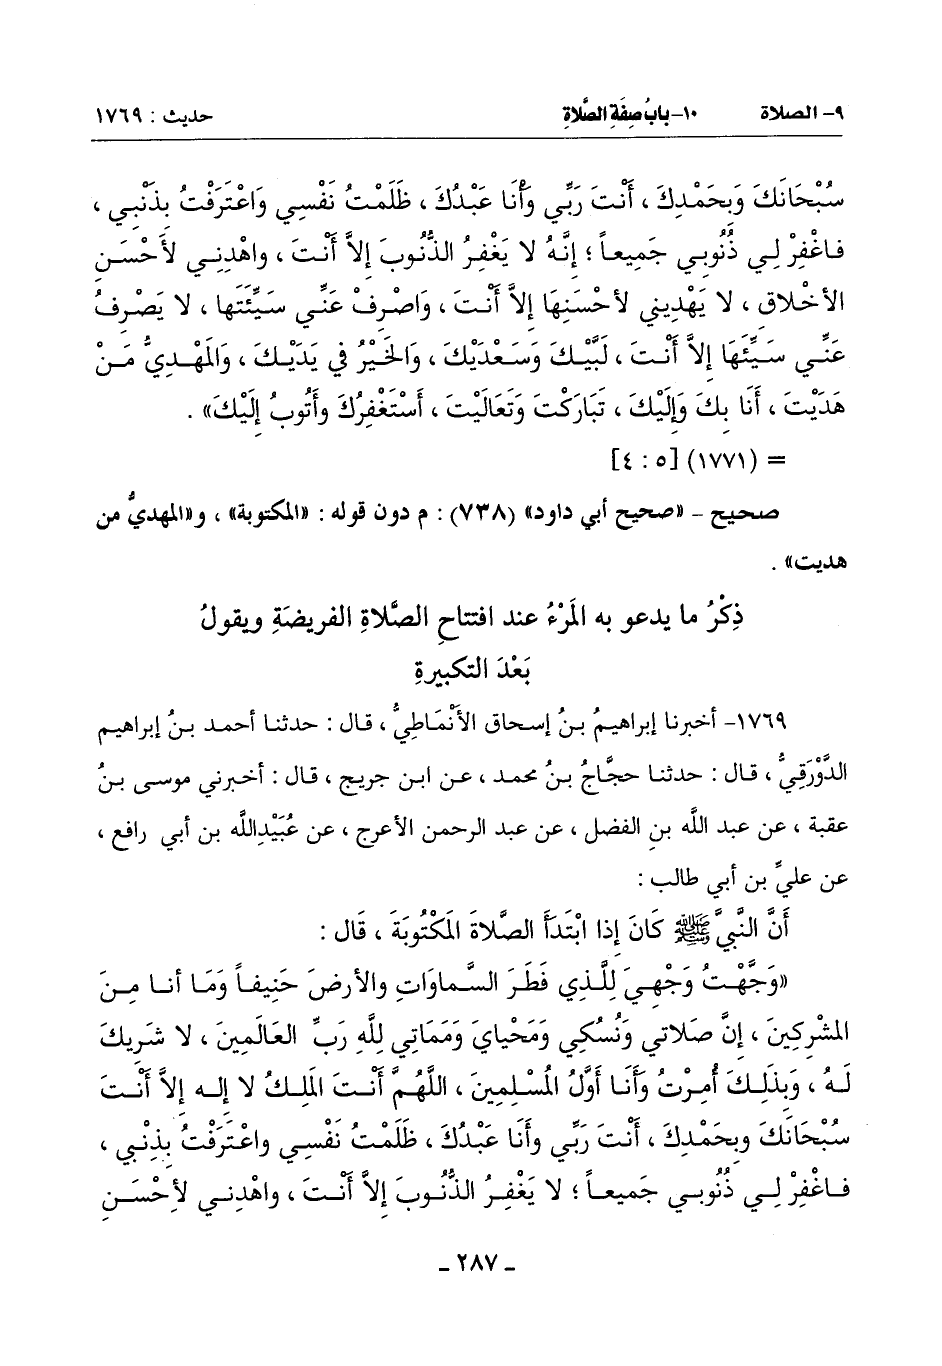 ٩- الصلاة ١٠- بابُ صِفَةِ الصَّلاةِ حديث : ١٧٦٩
سُبْحَانَكَ وَبِحَمْدِكَ ، أَنْتَ رَبِّي وَأَنا عَبْدُكَ ، ظَلَمْتُ نَفْسِي وَاعْتَرَفْتُ بِذَنْبِي ،
فَاغْفِرْ لِي ذُنُوبِي جَمِيعاً ؛ إِنَّهُ لا يَغْفِرُ الذُّنُوبَ إِلاَّ أَنْتَ ، واهْدِنِي لأَحْسَنِ
الأَخْلاق ، لا يَهْدِيني لأَحْسَنِهَا إلاَّ أَنْتَ ، وَاصْرِفْ عَنِّي سَيِّئَتَها ، لا يَصْرِفُ
عَنِّي سَيِّئَهَا إِلاَّ أَنْتَ ، لَبَّيْكَ وَسَعْدَيْكَ ، وَالخَيْرُ فِي يَدَيْكَ ، وَالَمْهدِيُّ مَنْ
هَدَيْتَ ، أَنَا بِكَ وَإِلَيْكَ ، تَبَارَكْتَ وَتَعَالَيْتَ ، أَسْتَغْفِرُكَ وأَتُوبُ إِلَيْكَ» .
= (١٧٧١) [٥ : ٤]
صحيح – «صحيح أبي داود» (٧٣٨) : م دون قوله : «المكتوبة» ، و«المهديُّ من
هديت» .
ذِكْرُ ما يدعو به المَرْءُ عند افتتاحِ الصَّلاةِ الفريضَةِ ويقولُ
بَعْدَ التكبيرةِ
١٧٦٩- أخبرنا إبراهيمُ بنُ إسحاق الأَنْماطِيُّ ، قال : حدثنا أحمد بنُ إبراهيم
الدَّوْرَقِيُّ ، قال : حدثنا حجَّاجُ بنُ محمد ، عن ابن جريج ، قال : أخبرني موسى بنُ
عقبة ، عن عبد اللَّهِ بن الفضل ، عن عبد الرحمن الأعرج ، عن عُبَيْدِاللَّه بن أبي رافع ،
عن عليِّ بن أبي طالب :
أَنَّ النَّبِيَّ ﷺ كَانَ إِذا ابْتَدَأَ الصَّلاةَ المَكْتُوبَةَ ، قَال :
«وَجَّهْتُ وَجْهِيَ لِلَّذِي فَطَرَ السَّماوَاتِ والأَرضَ حَنِيفاً وَمَا أنا مِنَ
المُشْرِكِينَ ، إِنَّ صَلاتي وَنُسُكِي وَمَحْيايَ وَمَمَاتِي لِلَّهِ رَبِّ العَالَمِينَ ، لا شَريكَ
لَهُ ، وَبِذَلِكَ أُمِرْتُ وَأَنا أَوَّلُ المُسْلِمِينَ ، اللَّهُمَّ أَنْتَ المَلِكُ لا إله إلاَّ أَنْتَ
سُبْحَانَكَ وبِحَمْدِكَ ، أَنْتَ رَبِّي وأَنَا عَبْدُكَ ، ظَلَمْتُ نَفْسِي واعْتَرَفْتُ بِذِنْبِي ،
فَاغْفِرْ لِي ذُنُوبي جَميعاً ؛ لا يَغْفِرُ الذُّنُوبَ إِلاَّ أَنْتَ ، واهْدِني لأَحْسَنِ
ـ ٢٨٧ ـ